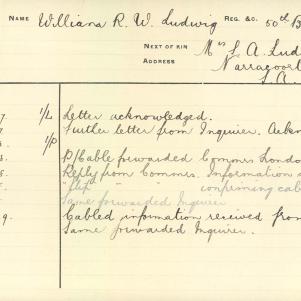 NAME William R. W. Ludwig REG. &C. 50th B
NEXT OF KIN Mrs L. A. Lud
ADDRESS Narracoor
S. A.
7. 1/L Letter acknowledged.
Further letter from Inquirer.
1/P
B/Cable forwarded Commrs London
Reply from Commrs. Information
" " confirming cab
Same forwarded Inquirer
9. Cabled information received from
Same forwarded Inquirer.